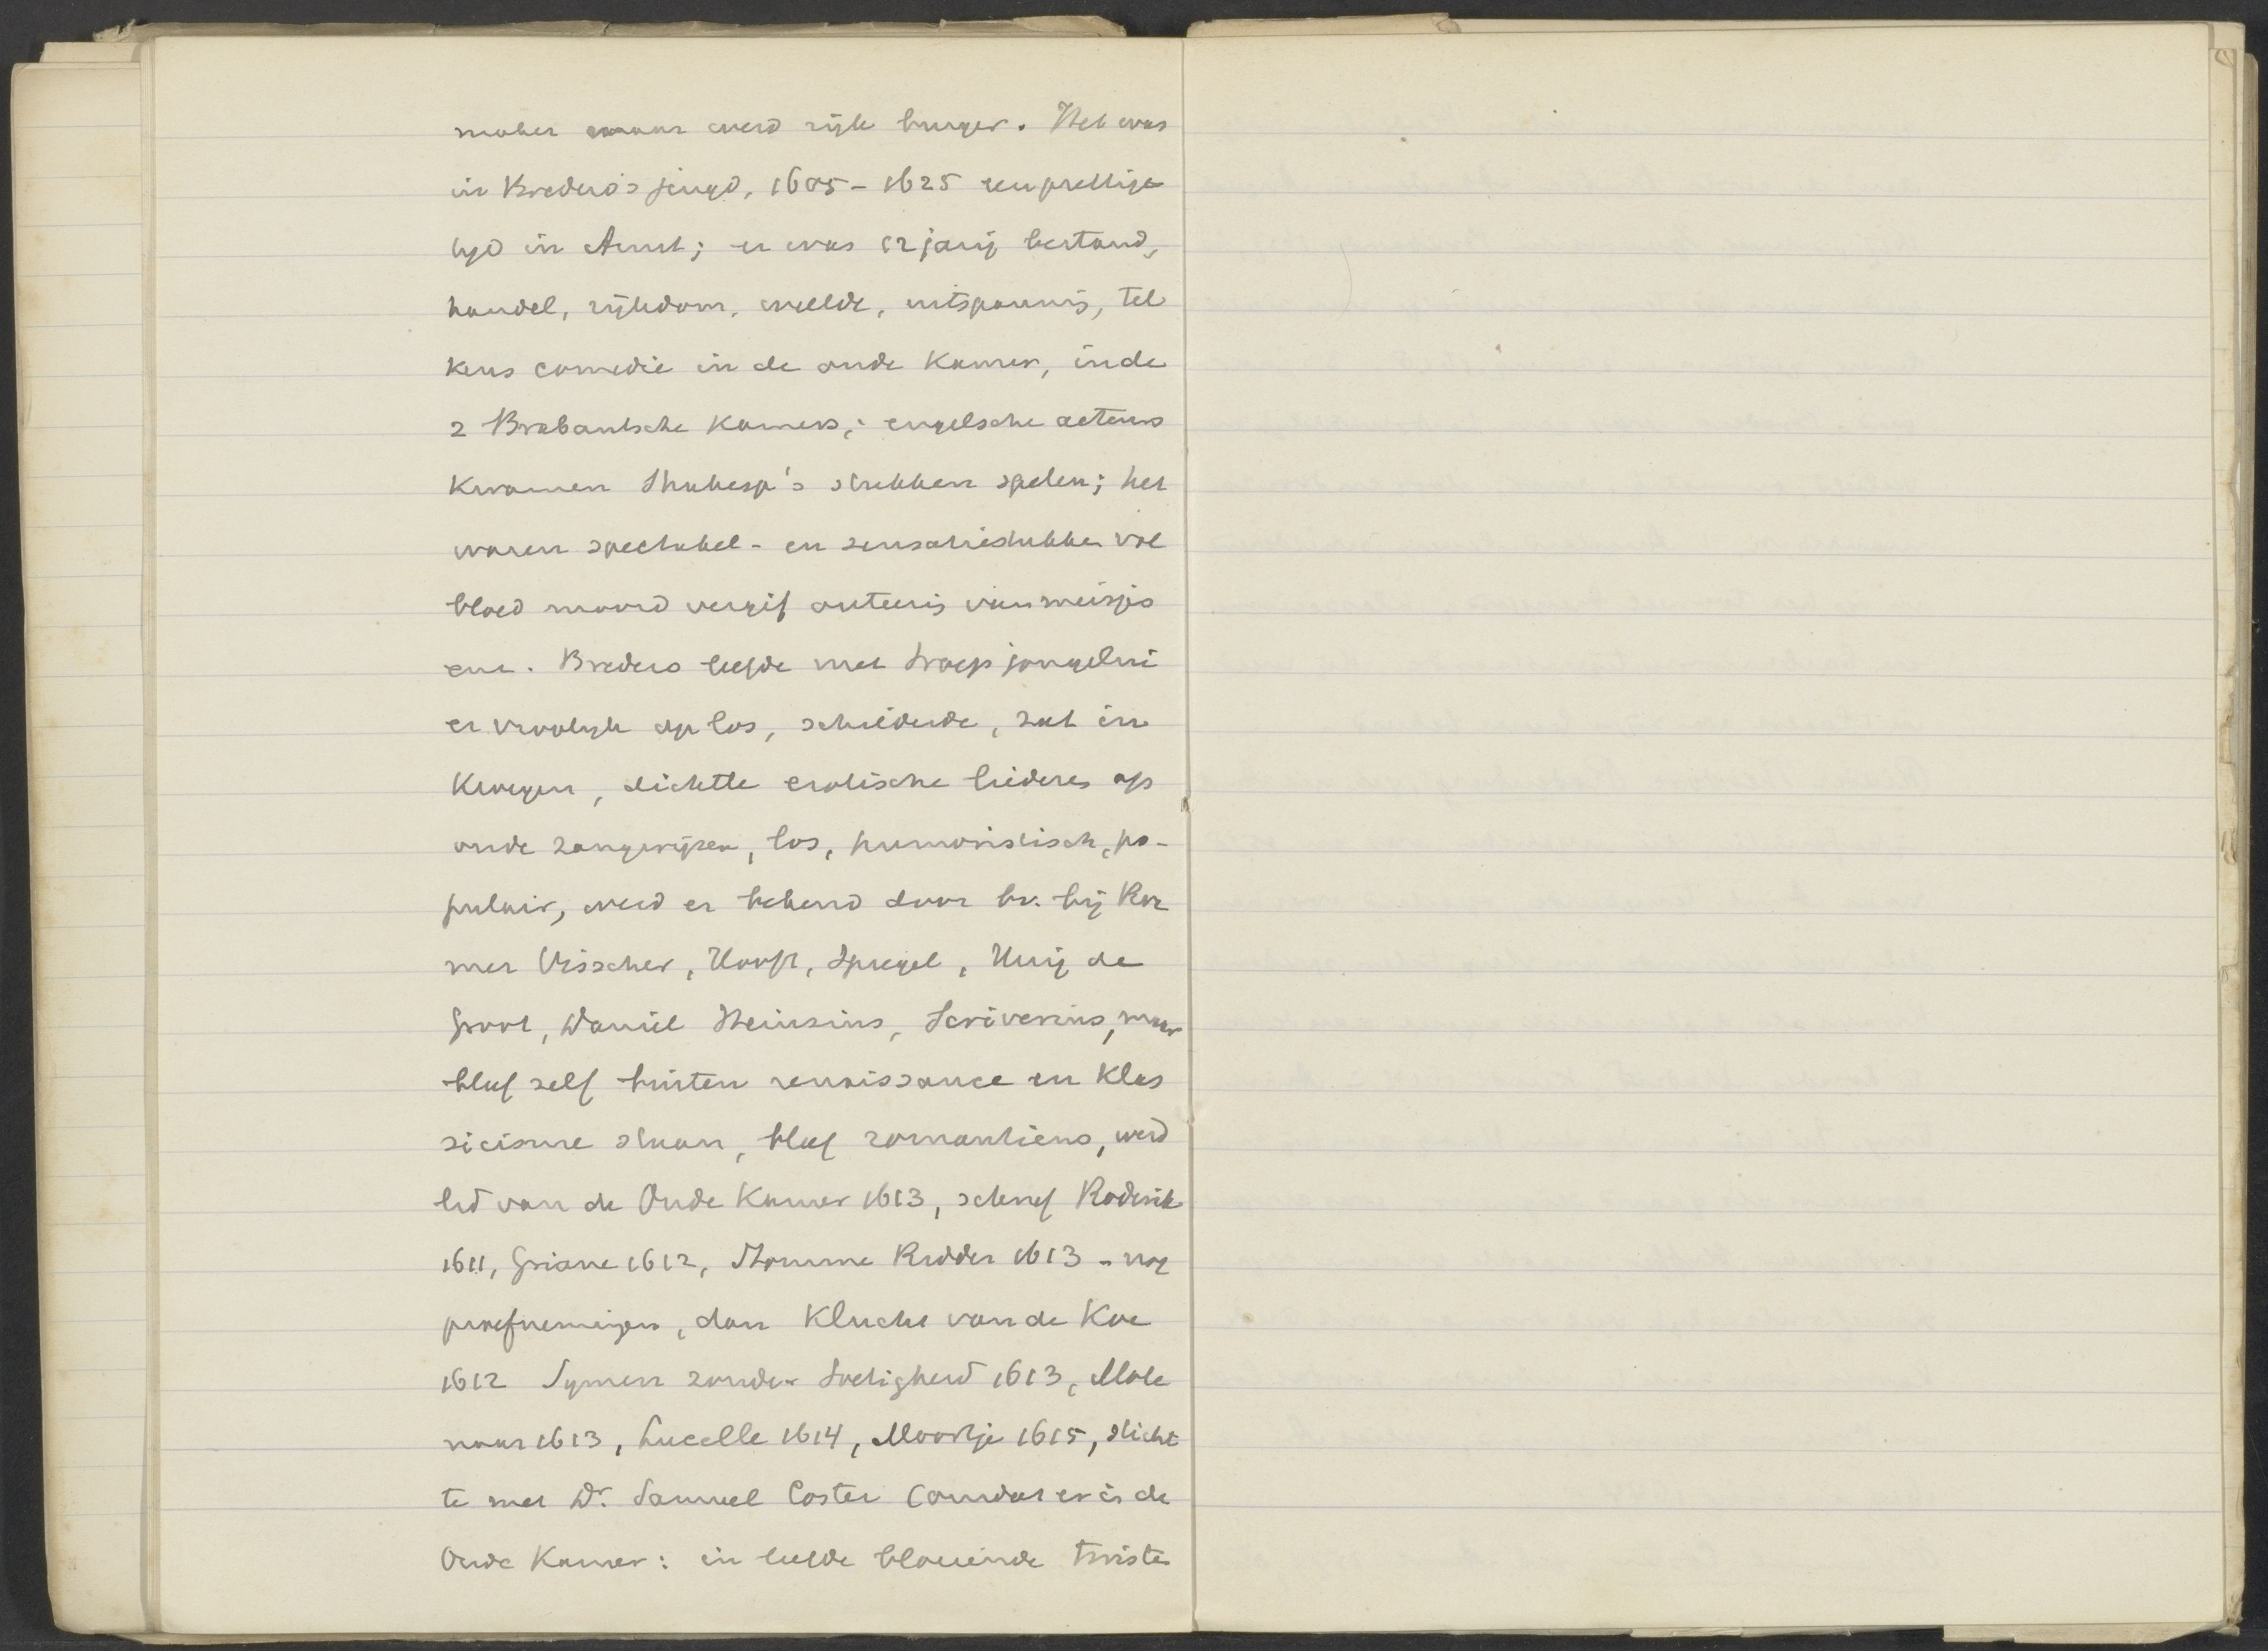 maker maar werd rijk burger. Het was
in Bredero's jeugd, 1605 - 1625 een prettige
tijd in Amst; er was 12 jarig bestand,
handel, rijkdom, weelde, uitspanning, tel
kens comedie in de oude Kamer, in de
2 Brabantsche Kamers; engelsche acteurs
kwamen Shakesp's stukken spelen; het
waren spectakel- en sensatiestukken vol
bloed moord vergif onteering van meisjes
enz. Bredero leefde met troep jongelui
er vroolijk op los, schilderde, zat in
Kroegen, dichtte erotische liederen op
oude zangwijzen, los, humoristisch, po-
pulair, werd er bekend door bv. bij Roe
mer Visscher, Hooft, Spiegel, Huig de
Groot, Daniel Heinsius, Scriverius, maar
bleef zelf buiten renaissance en klas
sicisme staan, bleef romanticus, werd
lid van de Oude Kamer 1613, schreef Roderik
1611, Griane 1612, Stomme Ridder 1613 - nog
proefnemingen, dan Klucht van de Koe
1612 Symen zonder Soetigheid 1613, Mole
naar 1613, Lucelle 1614, Moortje 1615, sticht
te met Dr. Samuel Coster (omdat er in de
Oude Kamer: in liefde bloeiende twisten